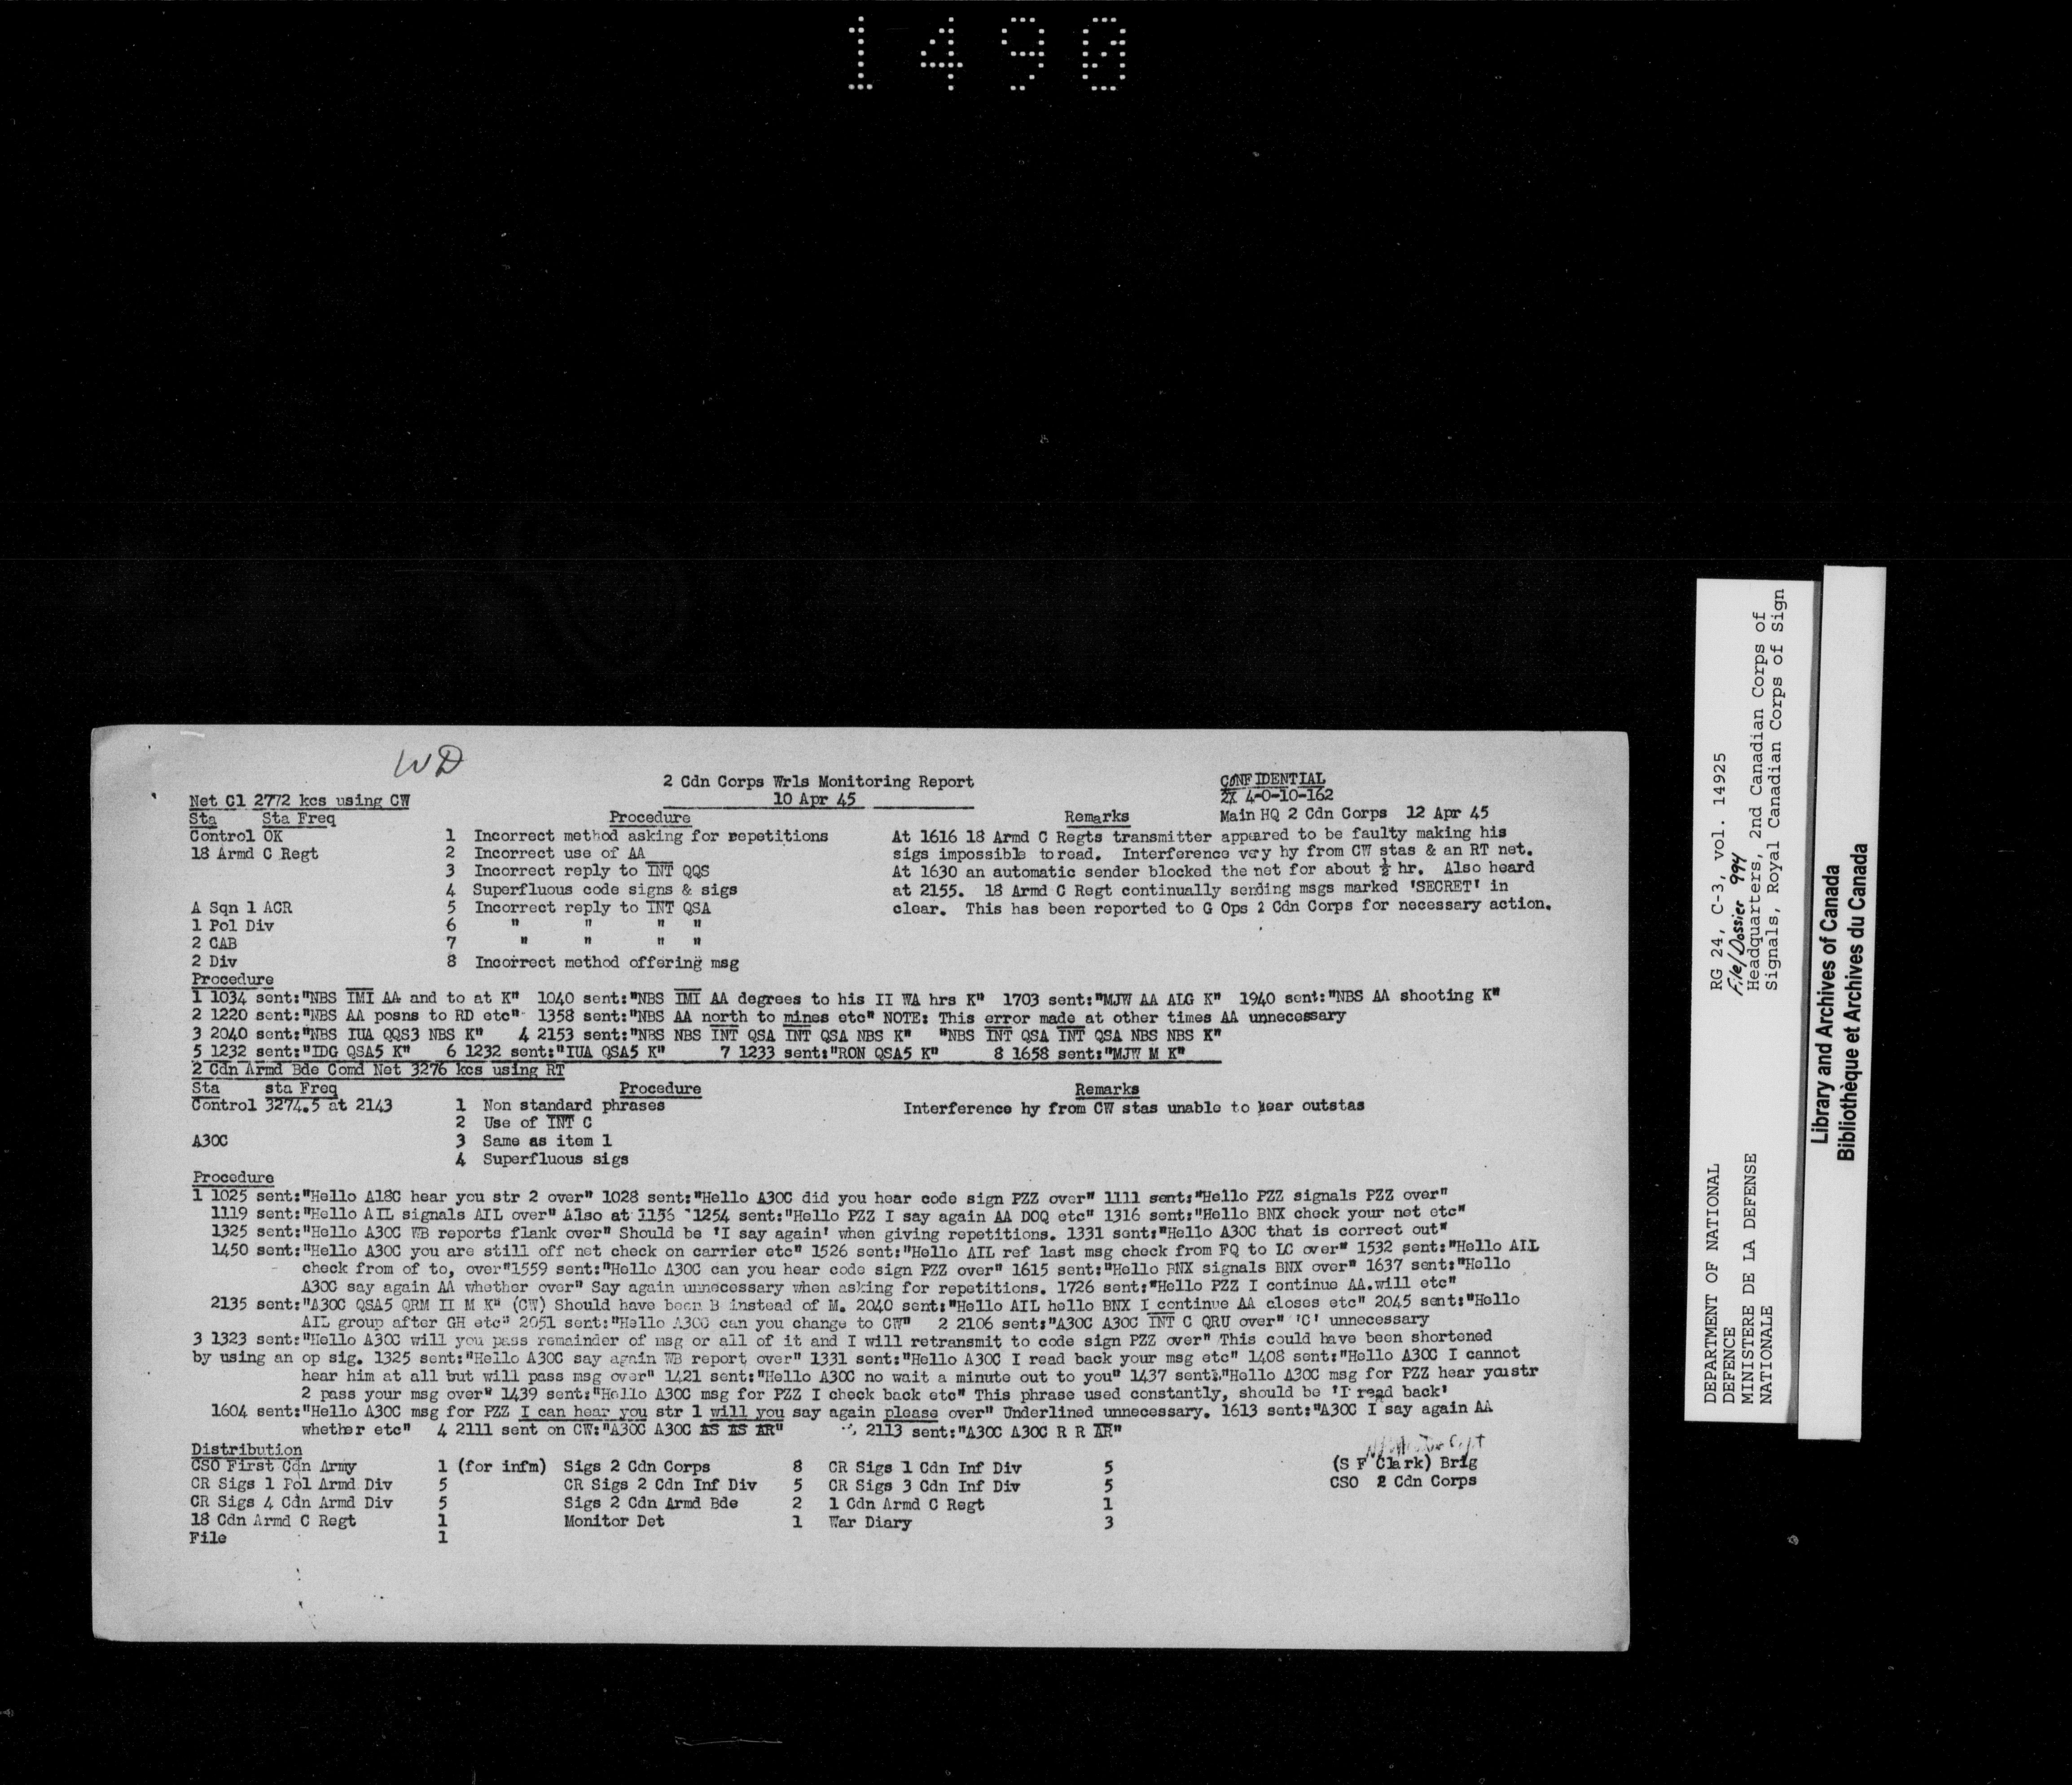 1490
WD
2 Cdn Corps Wrls Monitoring Report
10 Apr 45
CONFIDENTIAL
2X 4-0-10-162
Main HQ 2 Cdn Corps 12 Apr 45
Net C1 2772 kcs using CW
Sta Sta Freq Procedure Remarks
Control OK 1 Incorrect method asking for repetitions At 1616 18 Armd C Regts transmitter appeared to be faulty making his
18 Armd C Regt 2 Incorrect use of AA sigs impossible to read. Interference very hy from CW stas & an RT net.
3 Incorrect reply to INT QQS At 1630 an automatic sender blocked the net for about ½ hr. Also heard
4 Superfluous code signs & sigs at 2155. 18 Armd C Regt continually sending msgs marked 'SECRET' in
A Sqn 1 ACR 5 Incorrect reply to INT QSA clear. This has been reported to G Ops 2 Cdn Corps for necessary action.
1 Pol Div 6 " " " "
2 CAB 7 " " " "
2 Div 8 Incorrect method offering msg
Procedure
1 1034 sent:"NBS IMI AA and to at K" 1040 sent:"NBS IMI AA degrees to his II WA hrs K" 1703 sent:"MJW AA ALG K" 1940 sent:"NBS AA shooting K"
2 1220 sent:"NBS AA posns to RD etc" 1358 sent:"NBS AA north to mines etc" NOTE: This error made at other times AA unnecessary
3 2040 sent:"NBS IUA QQS3 NBS K" 4 2153 sent:"NBS NBS INT QSA INT QSA NBS K" "NBS INT QSA INT QSA NBS NBS K"
5 1232 sent:"IDG QSA5 K" 6 1232 sent:"IUA QSA5 K" 7 1233 sent:"RON QSA5 K" 8 1658 sent:"MJW M K"
2 Cdn Armd Bde Comd Net 3276 kcs using RT
Sta sta Freq Procedure Remarks
Control 3274.5 at 2143 1 Non standard phrases Interference hy from CW stas unable to hear outstas
2 Use of INT C
A30C 3 Same as item 1
4 Superfluous sigs
Procedure
1 1025 sent:"Hello A18C hear you str 2 over" 1028 sent:"Hello A30C did you hear code sign PZZ over" 1111 sent:"Hello PZZ signals PZZ over"
1119 sent:"Hello AIL signals AIL over" Also at 1156 1254 sent:"Hello PZZ I say again AA DOQ etc" 1316 sent:"Hello BNX check your net etc"
1325 sent:"Hello A30C WB reports flank over" Should be 'I say again' when giving repetitions. 1331 sent:"Hello A30C that is correct out"
1450 sent:"Hello A30C you are still off net check on carrier etc" 1526 sent:"Hello AIL ref last msg check from FQ to LC over" 1532 sent:"Hello AIL
check from of to, over"1559 sent:"Hello A30C can you hear code sign PZZ over" 1615 sent:"Hello BNX signals BNX over" 1637 sent:"Hello
A30C say again AA whether over" Say again unnecessary when asking for repetitions. 1726 sent:"Hello PZZ I continue AA.will etc"
2135 sent:"A30C QSA5 QRM II M K" (CW) Should have been B instead of M. 2040 sent:"Hello AIL hello BNX I continue AA closes etc" 2045 sent:"Hello
AIL group after GH etc" 2051 sent:"Hello A30C can you change to CW" 2 2106 sent:"A30C A30C INT C QRU over" 'C' unnecessary
3 1323 sent:"Hello A30C will you pass remainder of msg or all of it and I will retransmit to code sign PZZ over" This could have been shortened
by using an op sig. 1325 sent:"Hello A30C say again WB report over" 1331 sent:"Hello A30C I read back your msg etc" 1408 sent:"Hello A30C I cannot
hear him at all but will pass msg over" 1421 sent:"Hello A30C no wait a minute out to you" 1437 sent:"Hello A30C msg for PZZ hear you str
2 pass your msg over" 1439 sent:"Hello A30C msg for PZZ I check back etc" This phrase used constantly, should be 'I read back'
1604 sent:"Hello A30C msg for PZZ I can hear you str 1 will you say again please over" Underlined unnecessary. 1613 sent:"A30C I say again AA
whether etc" 4 2111 sent on CW:"A30C A30C AS AS AR" 2113 sent:"A30C A30C R R AR"
Distribution
CSO First Cdn Army 1 (for infm) Sigs 2 Cdn Corps 8 CR Sigs 1 Cdn Inf Div 5 (S F Clark) Brig
CR Sigs 1 Pol Armd Div 5 CR Sigs 2 Cdn Inf Div 5 CR Sigs 3 Cdn Inf Div 5 CSO 2 Cdn Corps
CR Sigs 4 Cdn Armd Div 5 Sigs 2 Cdn Armd Bde 2 1 Cdn Armd C Regt 1
18 Cdn Armd C Regt 1 Monitor Det 1 War Diary 3
File 1
DEPARTMENT OF NATIONAL
DEFENCE
MINISTERE DE LA DEFENSE
NATIONALE
RG 24, C-3, vol. 14925
File/Dossier 994
Headquarters, 2nd Canadian Corps of
Signals, Royal Canadian Corps of Sign
Library and Archives of Canada
Bibliothèque et Archives du Canada